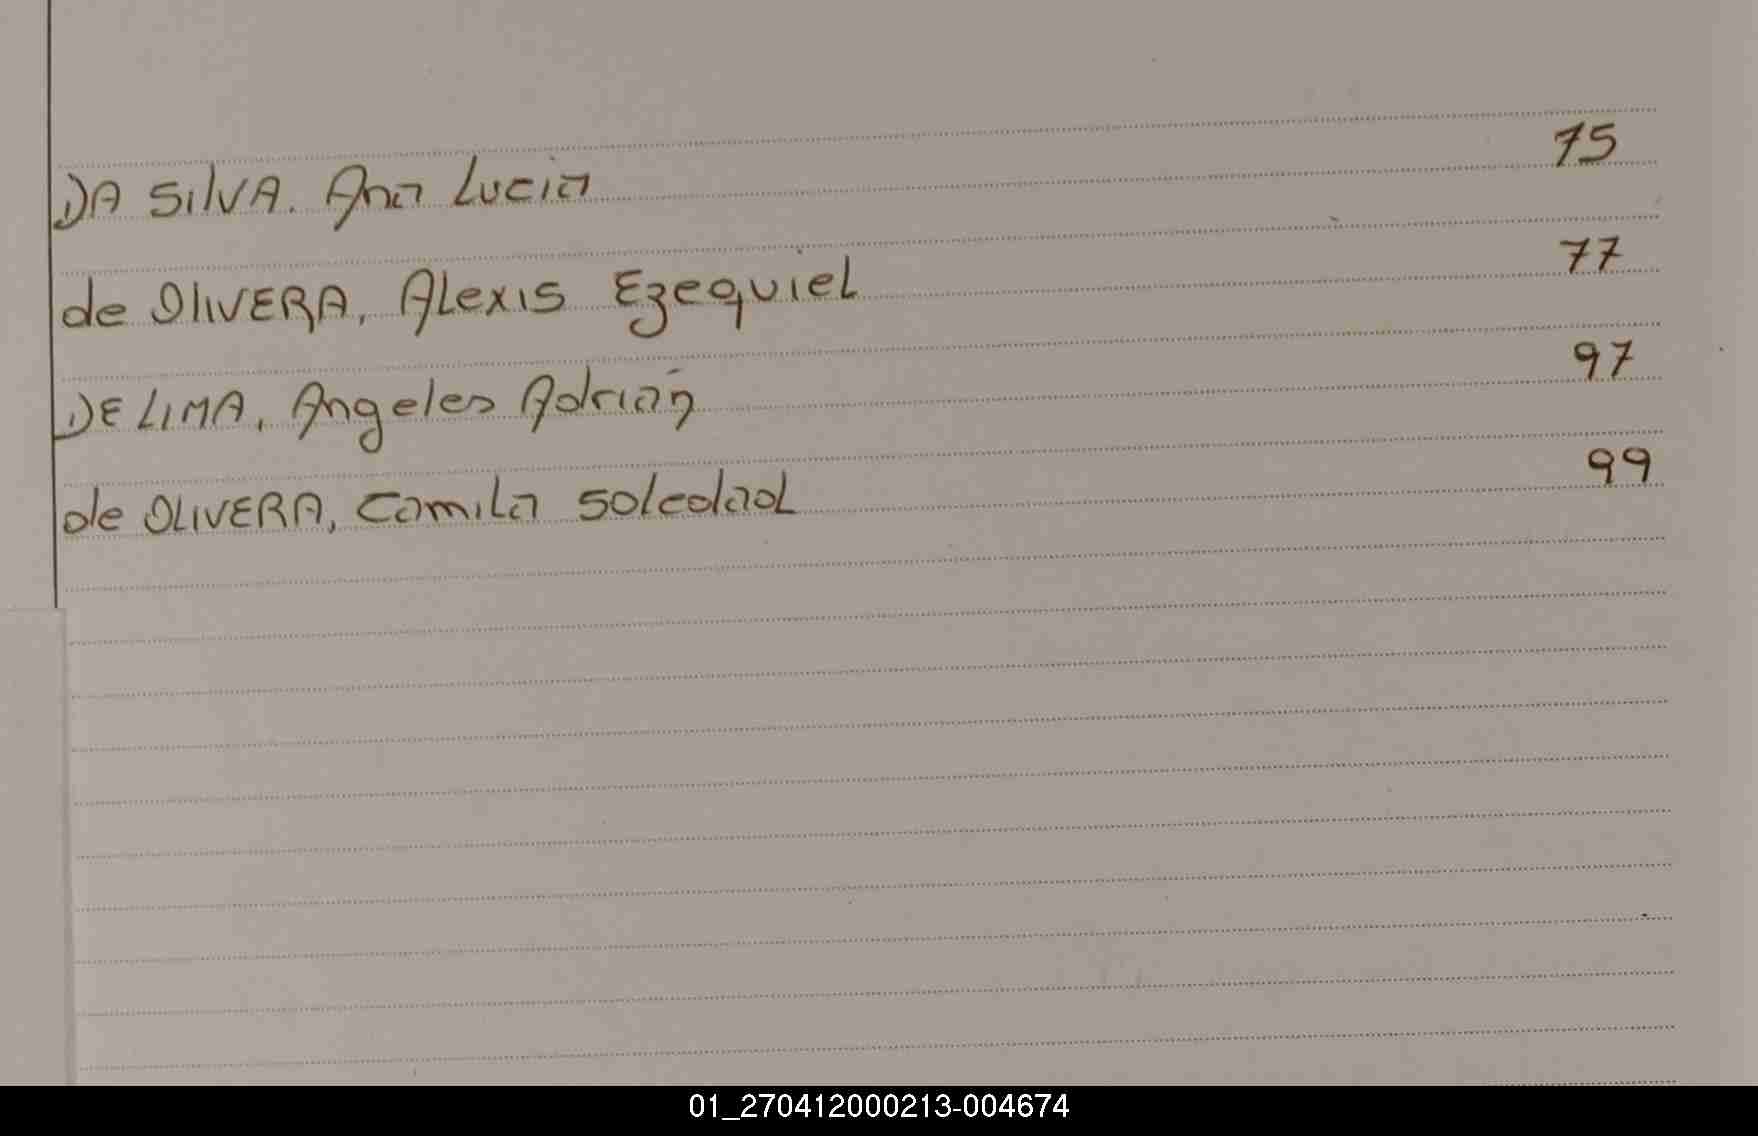 DA SilVA. Ana Lucia 75
de OlIVERA, Alexis Ezequiel 77
DE LIMA, Angeles Adrián 97
de OLIVERA, Camila Soledad 99
01_270412000213-004674